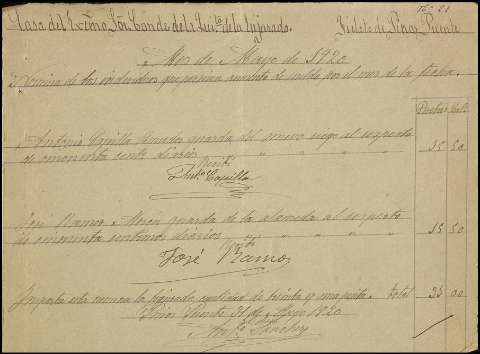 Casa del Exmo Sr. Conde de la Quta de la Enjarada. Sindto de Pinos Puente
Mes de Mayo de 1920
Nomina de los individuos que perciven aumento de sueldo por el mes de la fecha.
Pesetas Cts.
Antonio Capilla guarda del nuevo riego al respecto
de cincuenta cents diarios " " " " " 15 50
Recibí
Antº Capilla
José Ramos Moron guarda de la alameda al respecto
de cincuenta centimos diarios " " " " " 15 50
Recibí
José Ramos
Importa esta nomina la figurada cantidad de treinta y una pesetas. Total 31 00
Pinos Puente 31 de Mayo 1920
Antº Sanchez